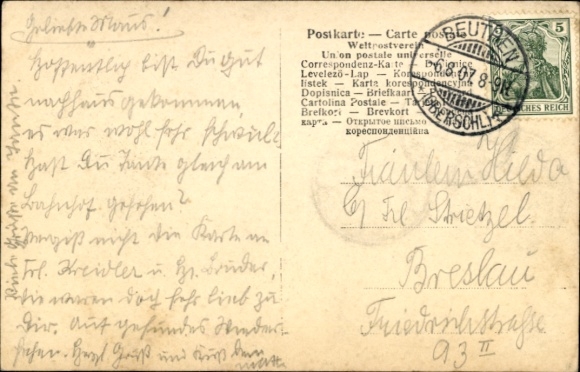 Geliebte Maus!
Hoffentlich bist Du gut
nachhaus gekommen
es war wohl sehr schwül.
Hast Du Tante gleich am
Bahnhof gesehen?
Vergiß nicht die Karte an
Frl. Kreidler u. Hr. Bruder,
die waren doch sehr lieb zu
Dir. Auf gesundes Wieder-
sehen. Herzl Gruß und Kuß Dein
Postkarte — Carte postale
Weltpostverein
Union postale universelle
Correspondenz-Karte
Levelező-Lap — Korespondenční
listek — Karta korespondencyjna
Dopisnica — Briefkaart
Cartolina Postale
Brefkort — Brevkort
карта — Открытое письмо
кореспонденційна
BEUTHEN
6.8.07.8-9N.
(OBERSCHL.)
5
DEUTSCHES REICH
Fräulein Hilda
c/ Frl Strietzel.
Breslau
Friedrichstrasse
93 II